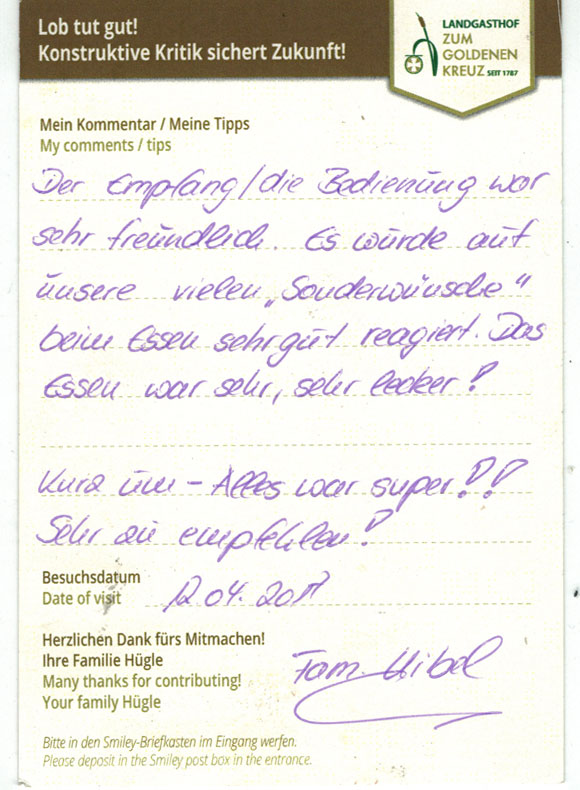 Lob tut gut!
Konstruktive Kritik sichert Zukunft!
LANDGASTHOF
ZUM
GOLDENEN
KREUZ SEIT 1787
Mein Kommentar / Meine Tipps
My comments / tips
Der Empfang/die Bedienung war
sehr freundlich. Es wurde auf
unsere vielen „Sonderwünsche"
beim Essen sehr gut reagiert. Das
Essen war sehr, sehr lecker!
Kurz um - Alles war super!!
Sehr zu empfehlen!
Besuchsdatum
Date of visit 12.04.2017
Herzlichen Dank fürs Mitmachen!
Ihre Familie Hügle
Many thanks for contributing!
Your family Hügle
Fam.
Bitte in den Smiley-Briefkasten im Eingang werfen.
Please deposit in the Smiley post box in the entrance.